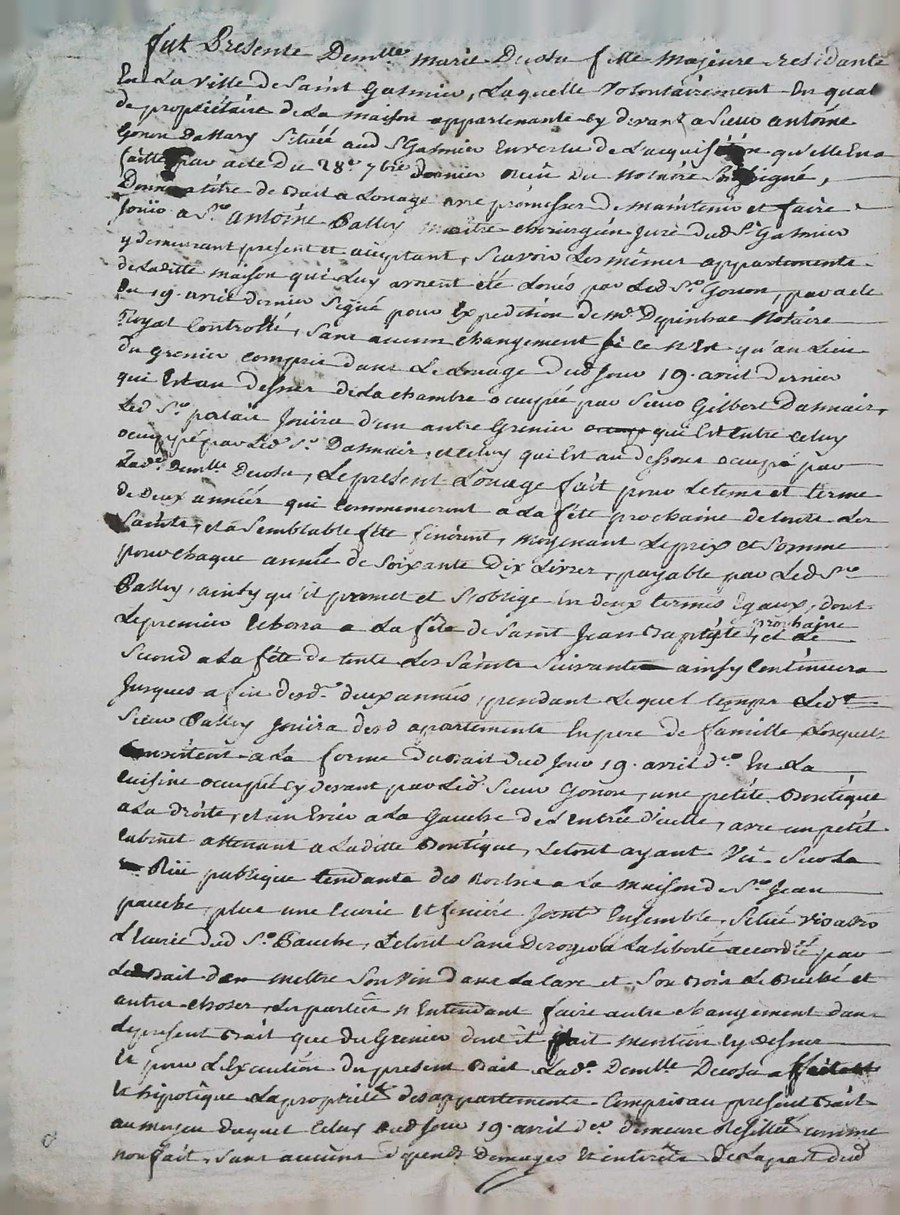 fut Presente Demlle marie Decosu fille majeure residante
En La Ville de Saint Galmier, Laquelle Volontairement En qual
de propriétaire de La maison appartenante cy devant a Sieur antoine
Gonon Dallary Scituée aud St Galmier En vertu de L'acquisition qu'elle En a
faitte par acte du 28e 7bre dernier reçu du Notaire Soussigné,
Donne a titre de Bail a Louage avec promesse de maintenir et faire
Jouïr a Sr antoine Balley maître chirurgien Juré dud St Galmier
y demeurant present et aceptant, Scavoir Les mêmes appartements
de Laditte maison qui Luy avoient été Loués par Led Sr Gonon, par acte
du 19. avril dernier Signé pour Expedition de me Depinhac Notaire
Royal Controllé, Sans aucun changement Si ce n'Est qu'au Lieu
du grenier compris dans Le Louage dud Jour 19. avril dernier
qui Est au dessus de La chambre occupée par Sieur Gilbert Dasnair,
Led Sr Jouira d'un autre Grenier qui Est Entre Celuy
occuppé par Led Sr Dasnair, et Celuy qui Est au dessous occupé par
Lade Demlle Decosu, Le present Louage fait pour Le tems et terme
de Deux années qui commenceront a La fête prochaine de toute Les
Saints, et a Semblable fête finiront, moyenant Le prix et Somme
pour chaque année de Soixante Dix Livres, payable par Led Sr
Balley, ainsy qu'il promet et S'oblige En deux termes Egaux, dont
Le premier Echerra a La fête de Saint Jean Baptiste prochaine, et Le
Second a La fête de toute Les Saints Suivante ainsy Continuera
Jusques a fin desd. deux années, pendant Lequel temps Ledt
Sieur Balley Jouira desd appartements En pere de famille Lesquels
Consistent a La forme du Bail dud Jour 19. avril der En La
cuisine occupée cy devant par Led. Sieur Gonon, une petite Boutique
a La droite, et un Evier a La Gauche de L'Entrée d'icelle, avec un petit
cabinet attenant a Laditte Boutique, Le tout ayant Vüe Sur La
Rüe publique tendante des Roches a La maison de Sr Jean
pauche, plus une Ecurie Et feniere Joint Ensemble, Scitué vis a vis
L'Ecurie dud Sr Pauche, Le tout Sans deroger a La liberté accordée par
Led Bail d'en mettre Son Vin dans La Cave et Son Bois Le Buché et
autres choses, Les parties n'Entendant faire autre changement dans
Le present Bail que du Grenier dont il fait mention cy dessus
Et pour L'Execution du present Bail Lade Demlle Decosu affecte
Et hipotêque La proprieté des appartements Compris au present Bail
au moyen duquel Celuy dud Jour 19. avril der demeure Resillié comme
non fait, Sans aucuns depends Domages Et interets de La part dud